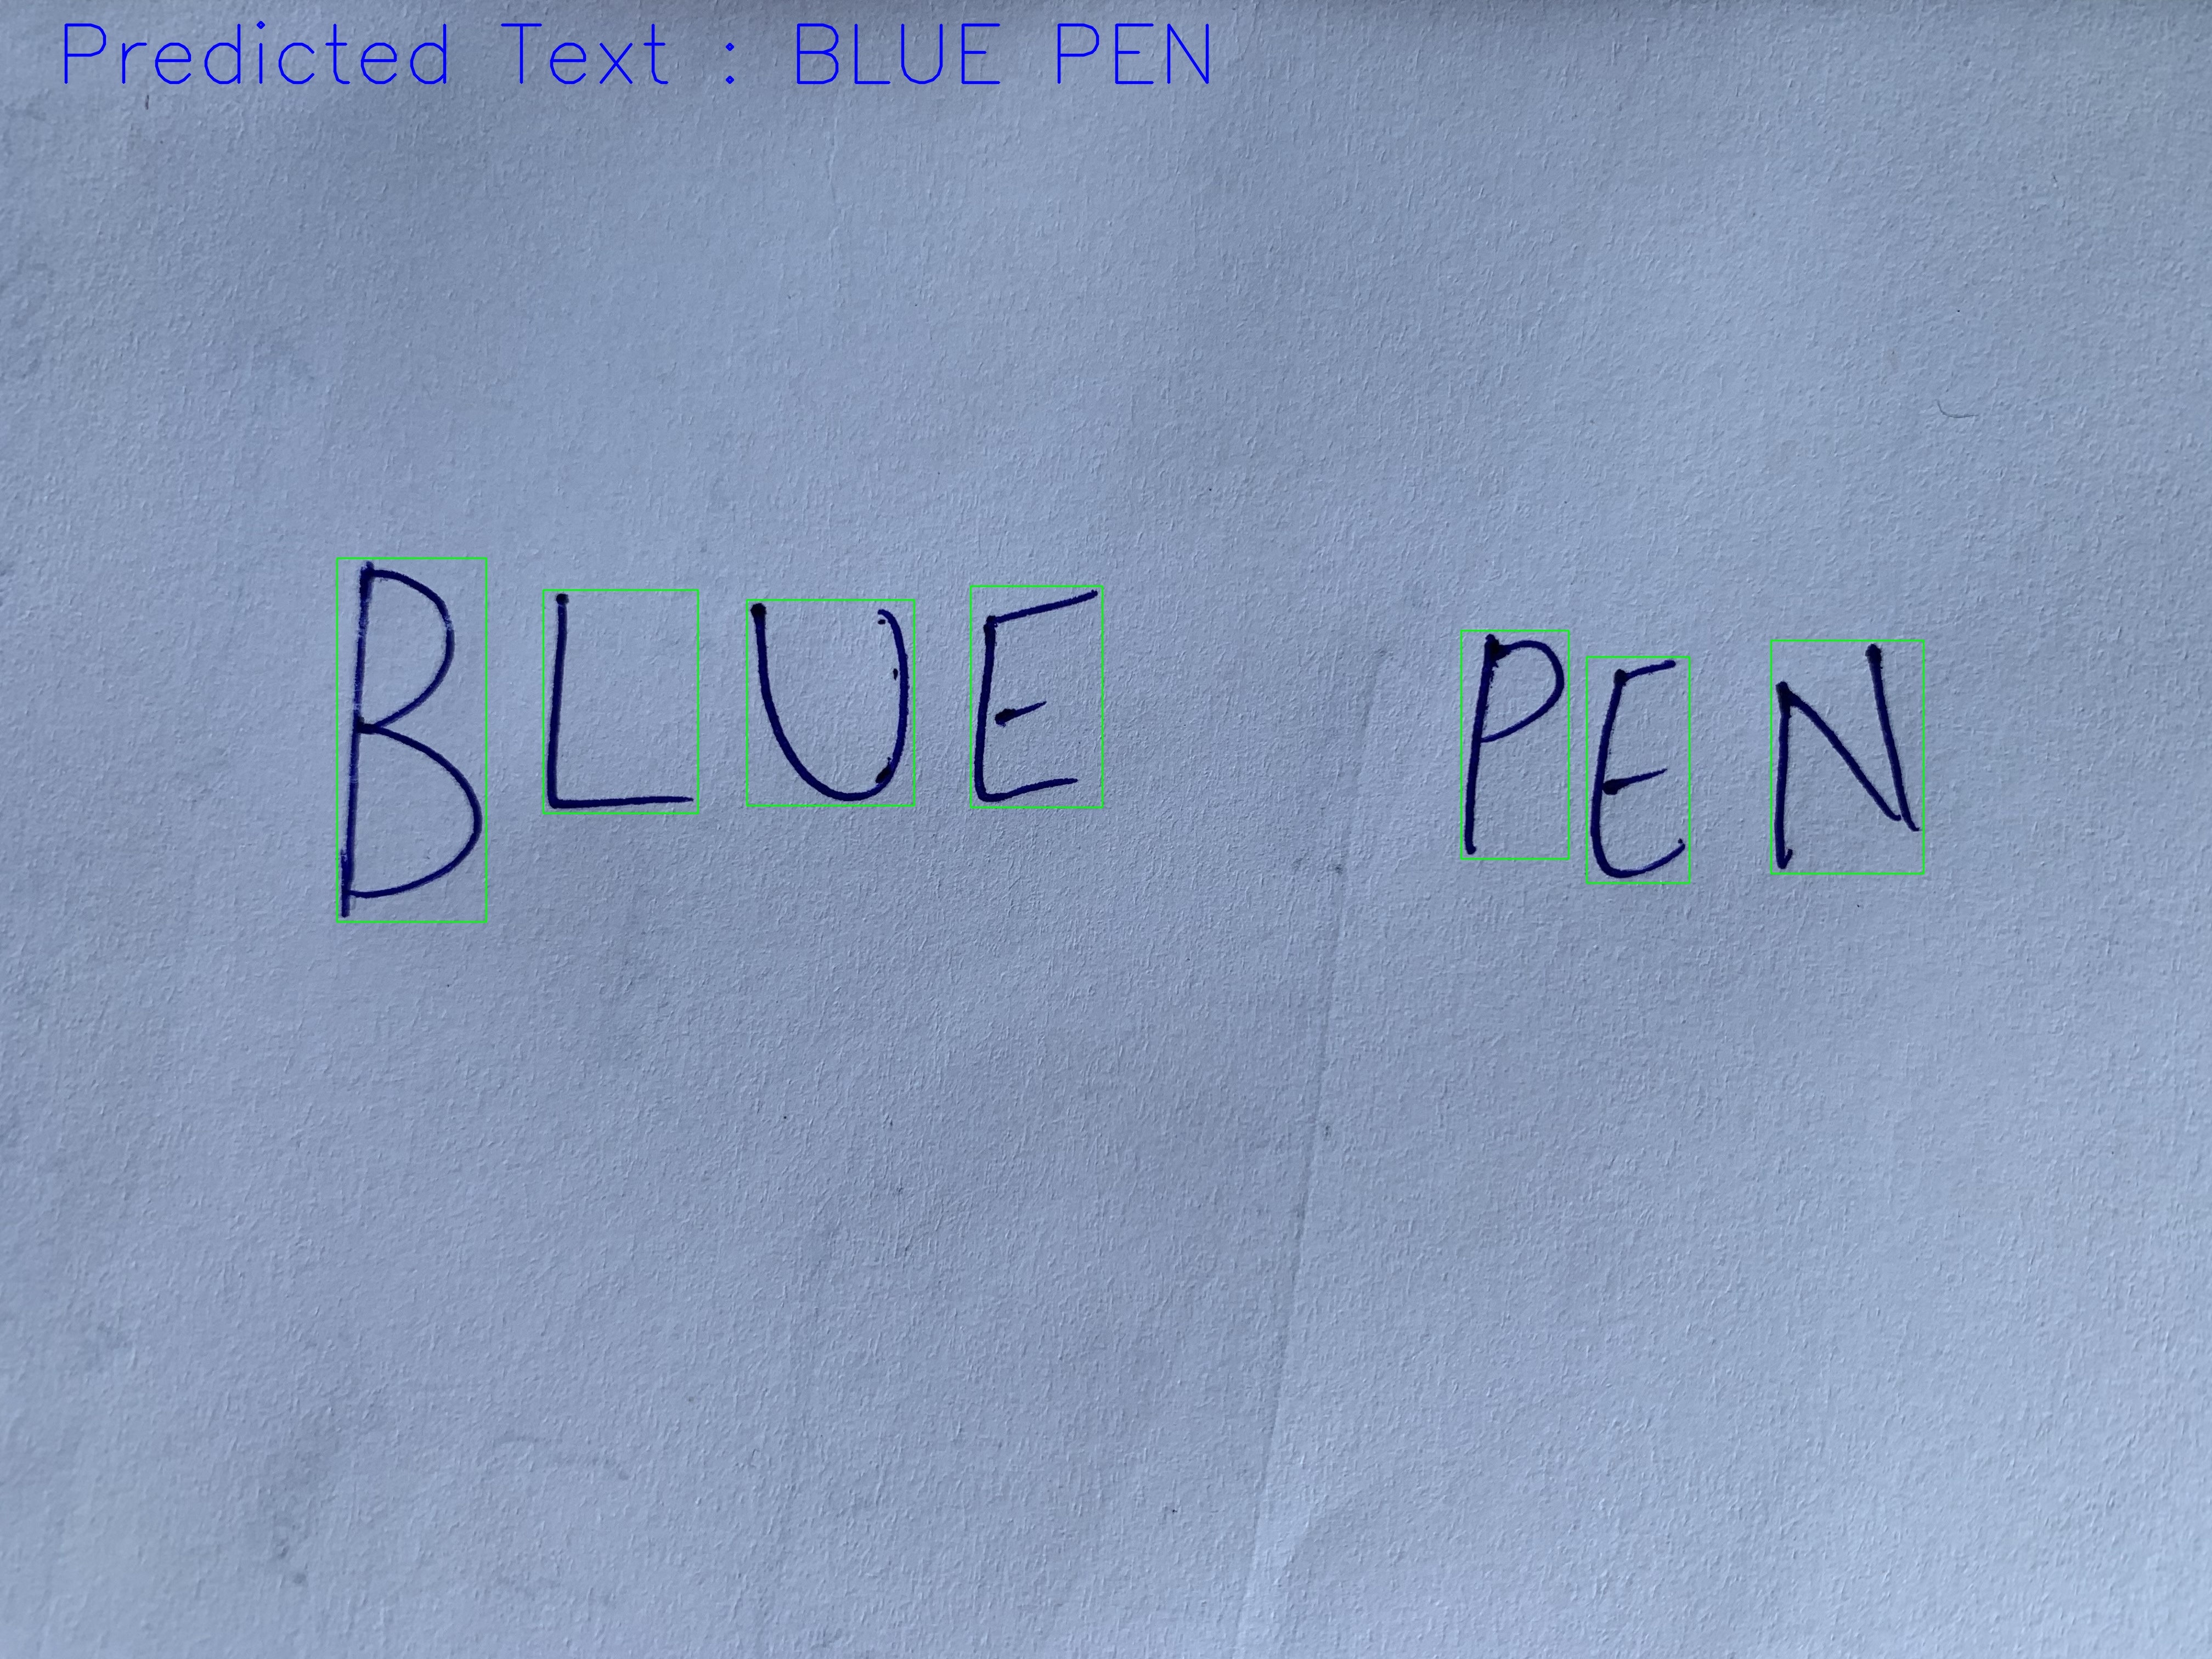 Predicted Text : BLUE PEN
BLUE PEN